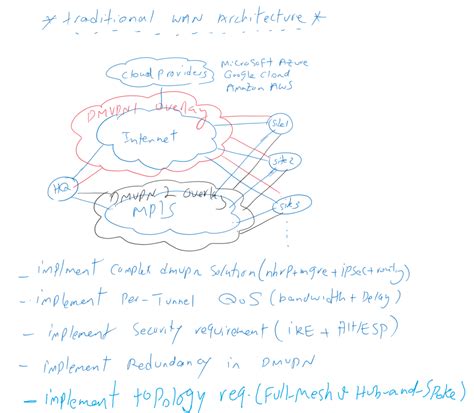 * traditional WAN Architecture *
Cloud providers
MicroSoft Azure
Google Cloud
Amazon AWS
DMVPN1 Overlay
Internet
Site1
Site2
HQ
DMVPN 2 Overlay
MPLS
Site3
- implment Complex dmvpn Solution (nhrp+mgre+ipsec+routing)
- implement Per-Tunnel QoS (bandwidth + Delay)
- implement Security requirement (IKE + AH/ESP)
- implement Redundancy in DMVPN
- implement topology req. (Full-Mesh & Hub-and-Spoke)